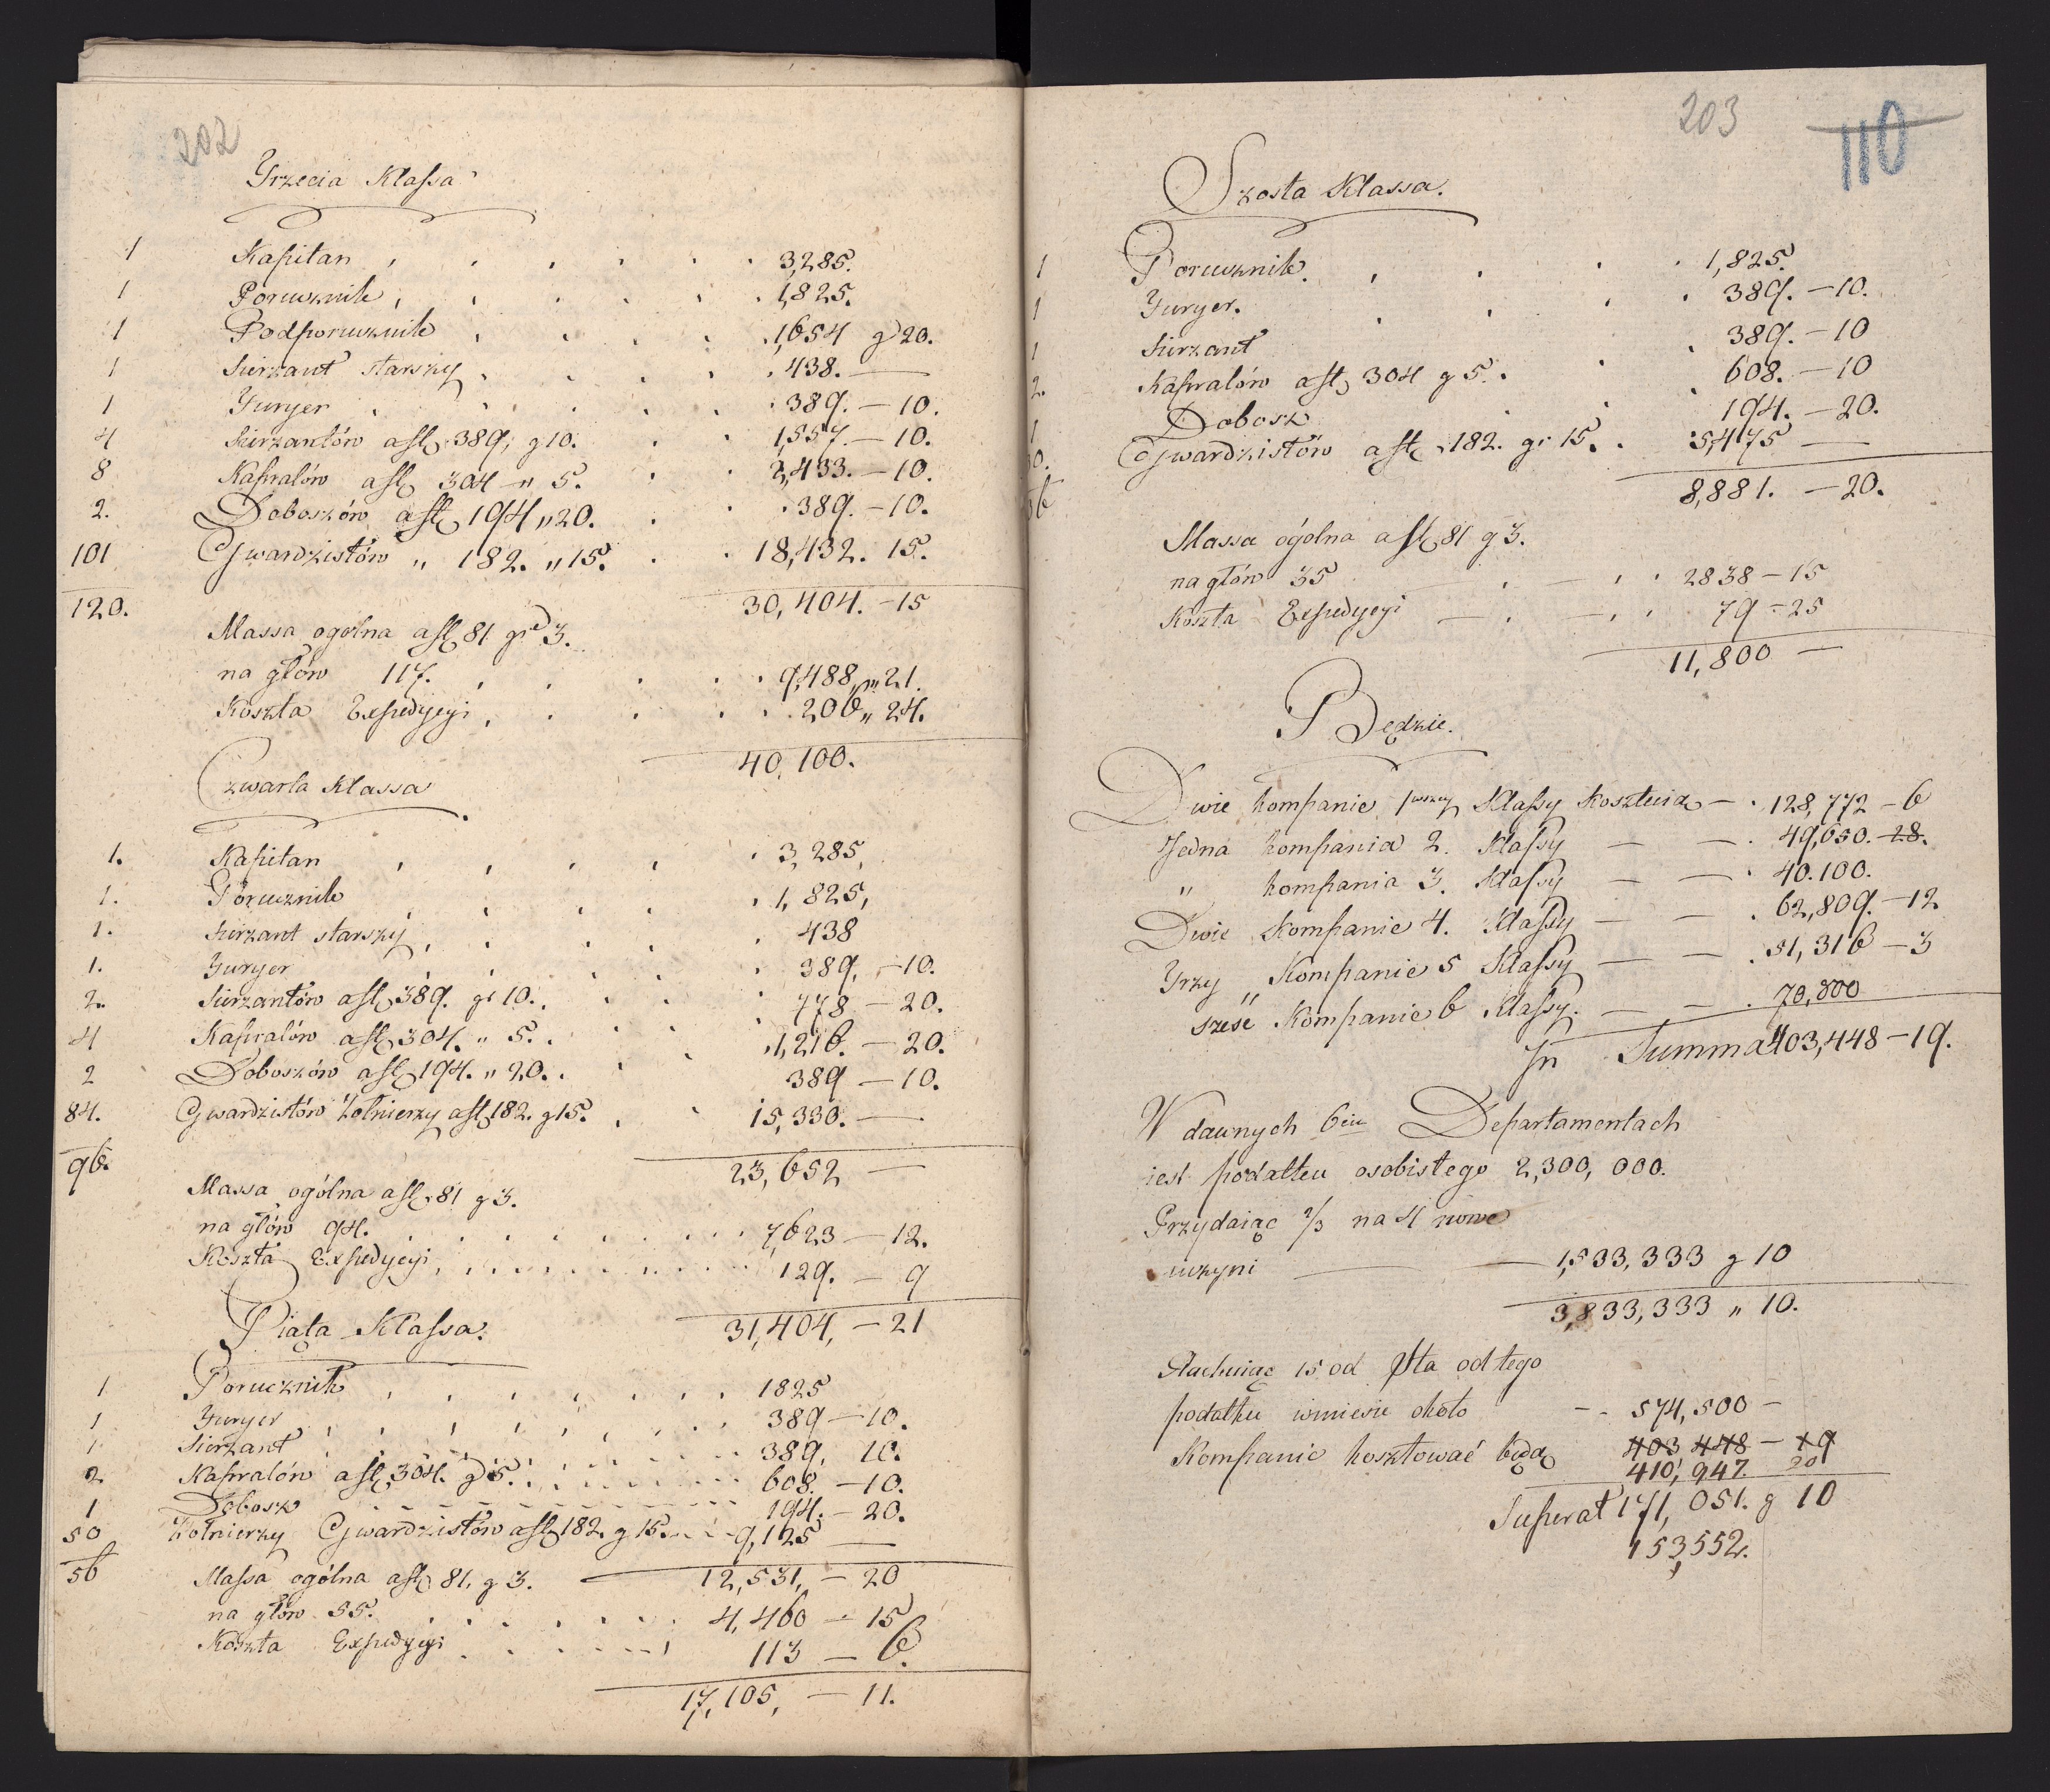 202
Trzecia Klassa
1 Kapitan 3,285.
1 Porucznik 1,825.
1 Podporucznik 1,654 g 20.
1 Sierzant starszy 438. —
1 Furyer 389. — 10.
4 Sierzantów a fl 389, g 10. 1,557. — 10.
8 Kapralów a fl 304 — „ 5. 2,433. — 10.
2. Doboszów a fl 194 „ 20. 389. — 10.
101 Gwardzistów „ 182. „ 15. 18,432. 15.
120. 30,404. — 15
Massa ogólna a fl 81 gr 3.
na głów 117. 9,488, „ 21.
Koszta Expedycyi 206 „ 24.
40,100.
Czwarta Klassa
1. Kapitan 3,285,
1. Porucznik 1,825,
1. Sierzant starszy 438
1. Furyer 389, — 10.
2. Sierzantów a fl 389. gr 10. 778 — 20.
4 Kapralów a fl 304. „ 5. 1,216. — 20.
2 Doboszów a fl 194. „ 20. 389 — 10.
84. Gwardzistów Żołnierzy a fl 182. g 15. 15,330. —
96. 23,652 —
Massa ogólna a fl 81 g 3.
na głów 94. 7,623 — 12.
Koszta Expedycyi 129. — 9
31,404, — 21
Piąta Klassa.
1 Porucznik 1825
1 Furyer 389 — 10.
1 Sierzant 389, 10.
2 Kapralów a fl 304. g 5. 608. — 10.
1 Dobosz 194. — 20.
50 Żołnierzy Gwardzistów a fl 182. g 15. 9,125 —
56 12,531, — 20
Massa ogólna a fl 81. g 3.
na głów 55. 4,460 — 15
Koszta Expedycyi 113 — 6.
17,105, — 11.
203
110
Szosta Klassa.
1 Porucznik 1,825.
1 Furyer. 389. — 10.
1 Sierzant 389. — 10
2. Kapralów a fl 304 g 5. 608. — 10
1 Dobosz 194. — 20.
0. Gwardzistów a fl 182. gr 15. 5,475 —
36 8,881. — 20.
Massa ógolna a fl 81 g 3.
na głów 35 2838 — 15
Koszta Expedycyi 79 — 25
11,800 —
Będzie.
Dwie kompanie 1wszey Klassy Kosztuią — 128,772 — 6
Jedna kompania 2. Klassy — 49,650. — 28.
„ kompania 3. Klassy — 40.100.
Dwie Kompanie 4. Klassy — 62,809. — 12
Trzy „ Kompanie 5 Klassy — 51,316 — 3
szesc Kompanie 6 Klassy. — 70,800
In Summa 403,448 — 19.
W dawnych 6ciu Departamentach
iest podatku osobistego 2,300,000.
Przydaiąc 2/3 na 4 nowe
uczyni — 1,533,333 g 10
3,833,333 „ 10.
Rachuiąc 15 od Sta od tego
podatku wniesie około — 574,500 —
Kompanie kosztować będą 403 448 — 19
410, 947. 20
Superat 171, 051. g 10
153,552.